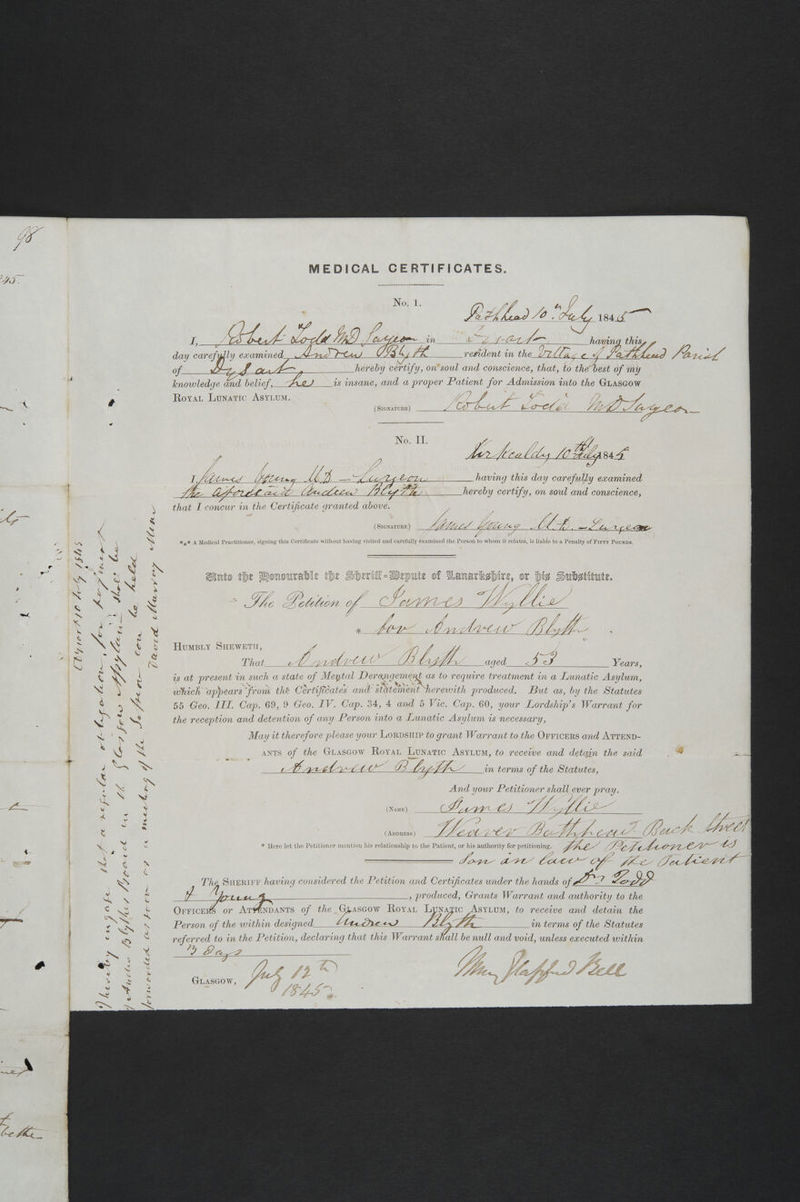 98
MEDICAL CERTIFICATES.
No. 1.
Pathhead 10th July 1845
I, Robert Todd MD Surgeon in Dysart having this
day carefully examined Andrew Blyth resident in the Village of Pathhead Parish
of Dysart hereby certify, on soul and conscience, that, to the best of my
knowledge and belief, he is insane, and a proper Patient for Admission into the GLASGOW
ROYAL LUNATIC ASYLUM.
(SIGNATURE) Robert Todd MD Surgeon
No. II.
Kirkcaldy 10th July 1845
I James Young M.D – Surgeon having this day carefully examined
the aforesaid Andrew Blyth hereby certify, on soul and conscience,
that I concur in the Certificate granted above.
(SIGNATURE) James Young M.D. – Surgeon
*** A Medical Practitioner, signing this Certificate without having visited and carefully examined the Person to whom it relates, is liable to a Penalty of FIFTY POUNDS.
Unto the Honourable the Sheriff-Depute of Lanarkshire, or his Substitute.
The Petition of James Wyllie
* for Andrew Blyth
HUMBLY SHEWETH,
That Andrew Blyth aged 53 Years,
is at present in such a state of Mental Derangement as to require treatment in a Lunatic Asylum,
which appears from the Certificates and statement herewith produced. But as, by the Statutes
55 Geo. III. Cap. 69, 9 Geo. IV. Cap. 34, 4 and 5 Vic. Cap. 60, your Lordship's Warrant for
the reception and detention of any Person into a Lunatic Asylum is necessary,
May it therefore please your LORDSHIP to grant WARRANT to the OFFICERS and ATTEND-
ANTS of the GLASGOW ROYAL LUNATIC ASYLUM, to receive and detain the said
Andrew Blyth in terms of the Statutes,
And your Petitioner shall ever pray.
(NAME) James Wyllie
(ADDRESS) Weaver Pathhead Back Street
* Here let the Petitioner mention his relationship to the Patient, or his authority for petitioning. The Petitioner is
Son an law of the Patient
The SHERIFF having considered the Petition and Certificates under the hands of Drs Todd
& Young, produced, Grants Warrant and authority to the
OFFICERS or ATTENDANTS of the GLASGOW ROYAL LUNATIC ASYLUM, to receive and detain the
Person of the within designed Andrew Blyth in terms of the Statutes
referred to in the Petition, declaring that this Warrant shall be null and void, unless executed within
13 Days
GLASGOW, July 12th
1845
Bell
Dysart 10 July 1845
I hereby engage that a regular obligation, for payment
of Andw Blyths Board in the Glasgow Assylum shall be
forwarded as soon as a meeting of the Session can be held
David Murray